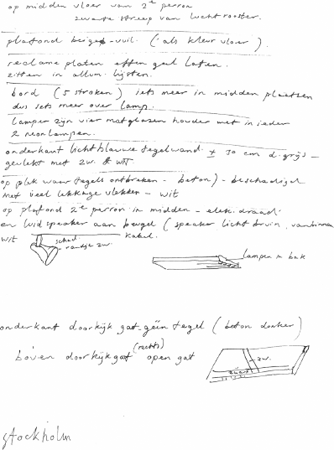 op midden vloer van 2e perron
zwarte streep van luchtrooster.
plafond beige-vuil. (als kleur vloer)
reclame platen effen geel laten.
zitten in allum. lijsten.
bord (5 stroken) iets meer in midden plaatsen
dus iets meer over lamp.
lampen zijn vier matglazen houder met in ieder
2 neonlampen.
onderkant lichtblauwe tegelwand ± 30 cm d.grijs-
gevlekt met zw. & wit
op plek waar tegels ontbreken - beton) - beschadigd
met veel lekkage vlekken - wit
op plafond 2e perron in midden - elek. draad.
en luidspeaker aan beugel (speaker licht bruin, vanbinnen
wit
kabel.
randje zw.
lampen in bak
onderkant doorkijk gat - géén tegel (beton donker)
bóven doorkijkgat (rechts) open gat
zw.
zwart
stockholm